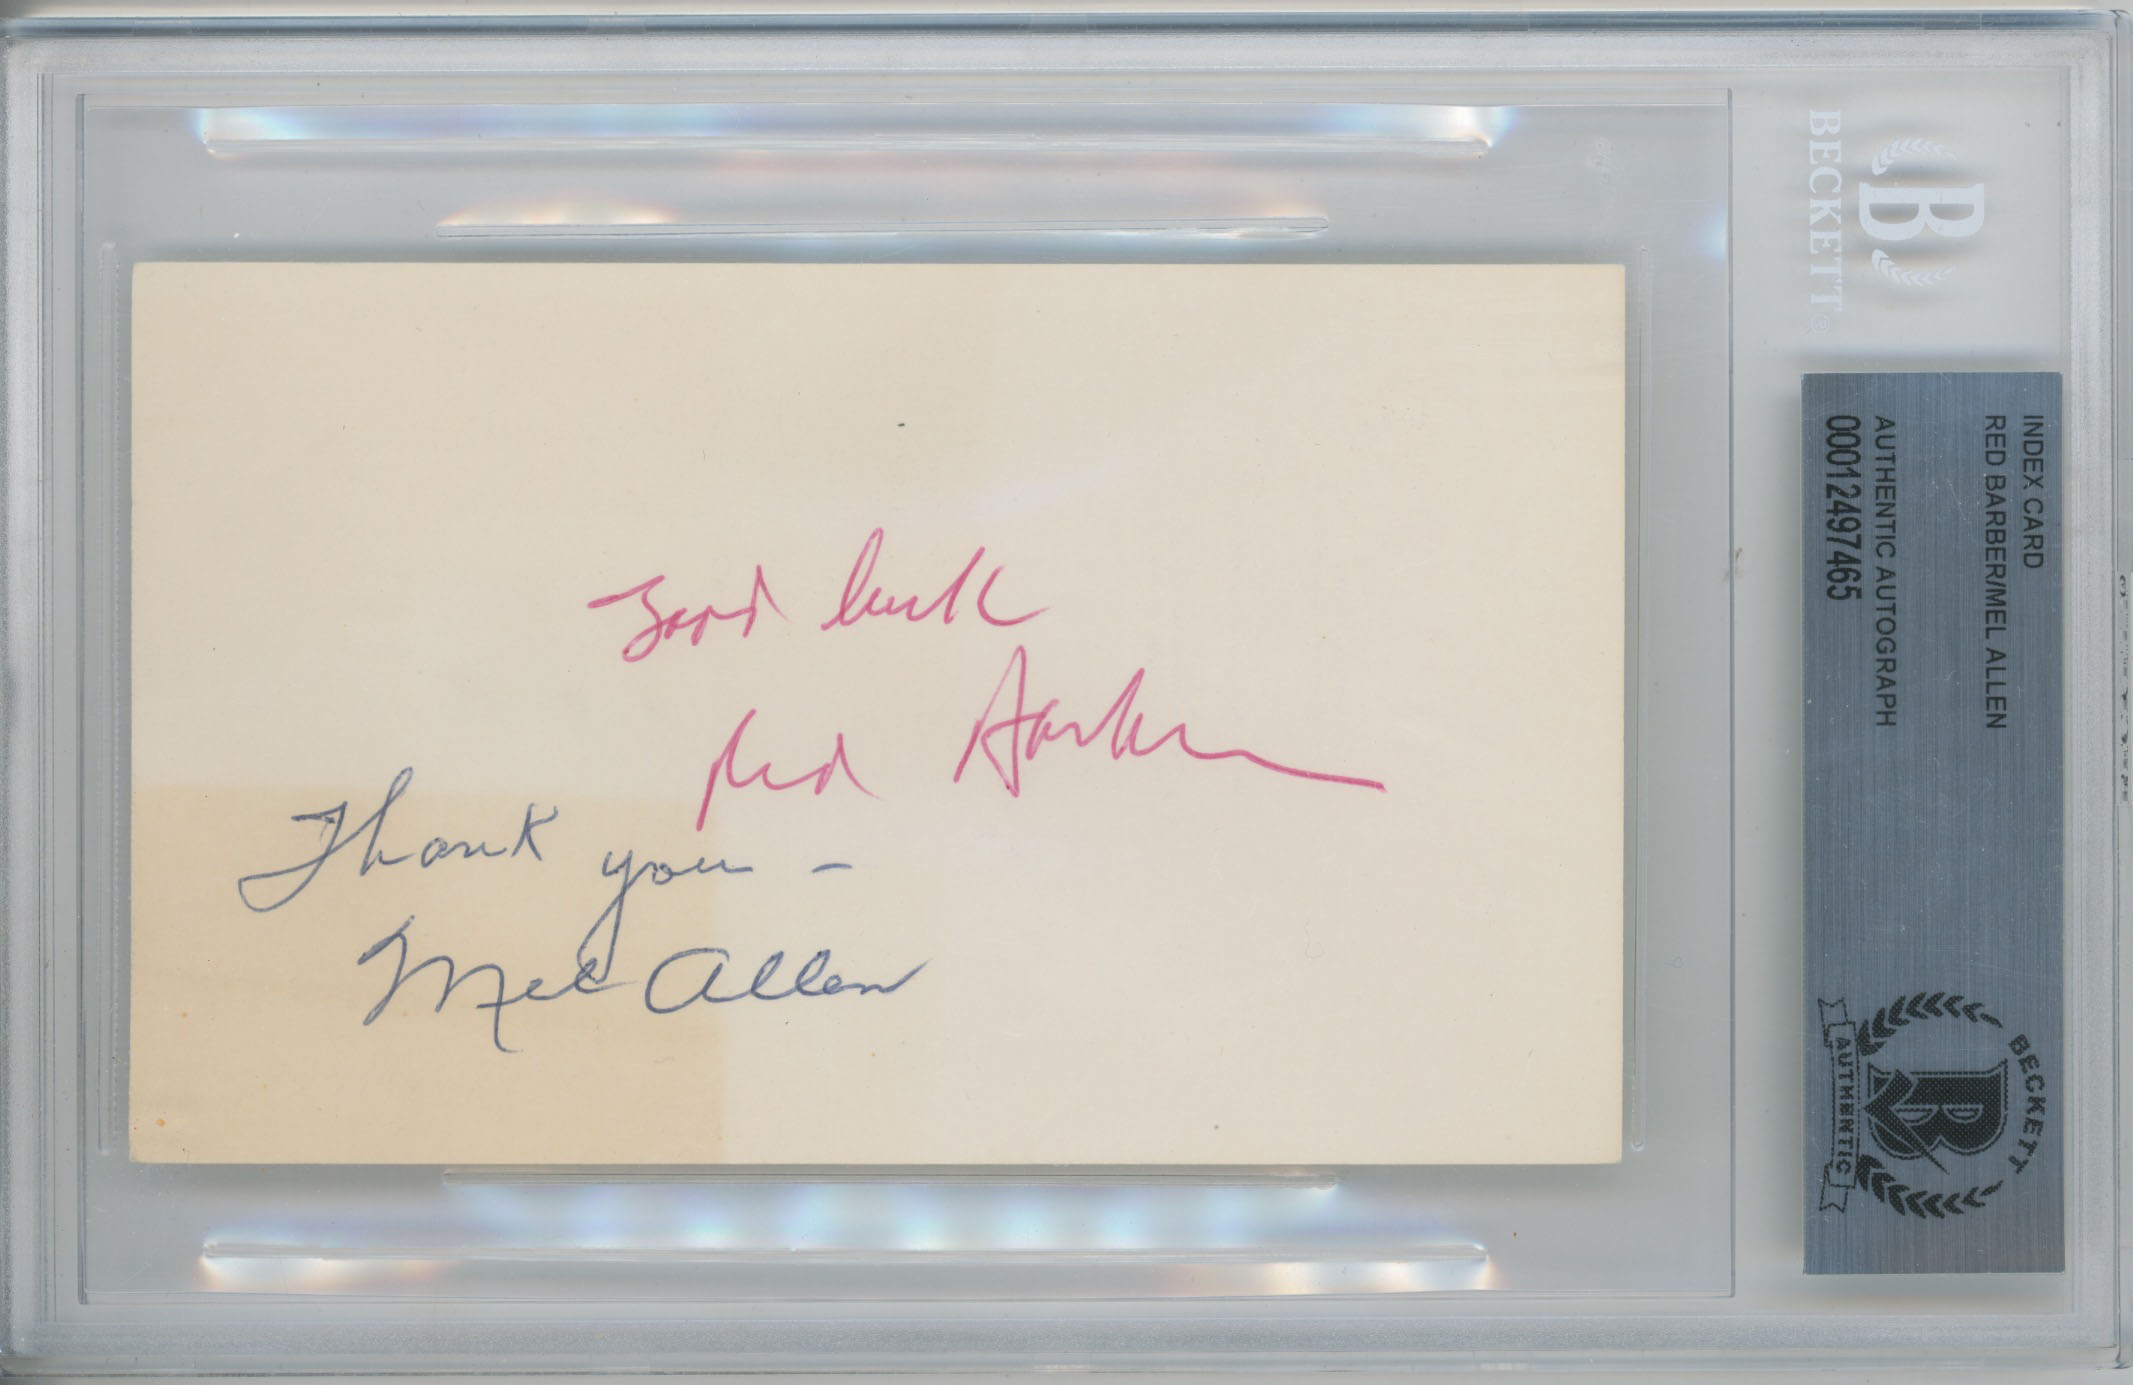 Good luck
Red Barber
Thank you -
Mel Allen
BECKETT
B
INDEX CARD
RED BARBER/MEL ALLEN
AUTHENTIC AUTOGRAPH
00012497465
BECKETT
B
AUTHENTIC